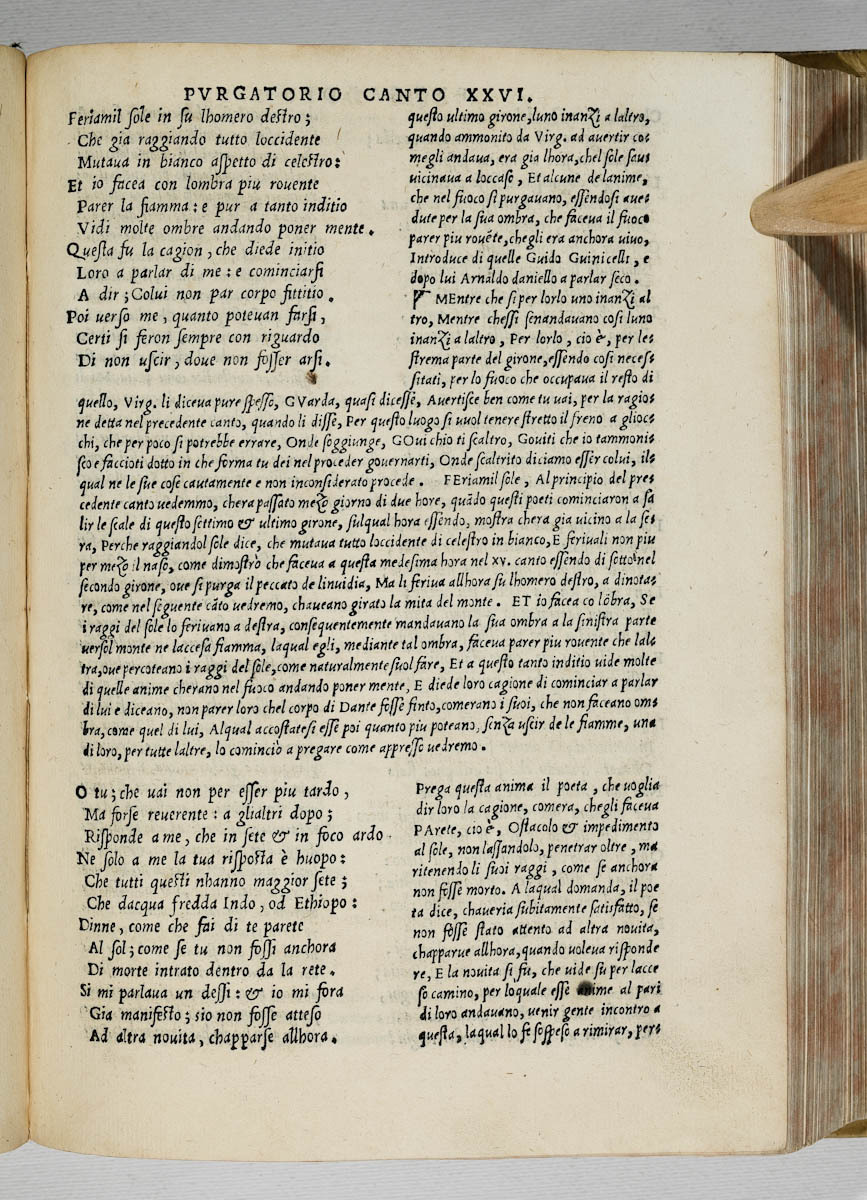 PVRGATORIO CANTO XXVI.
Feriamil sole in su lhomero destro;
Che gia raggiando tutto loccidente
Mutaua in bianco aspetto di celestro:
Et io facea con lombra piu rouente
Parer la fiamma: e pur a tanto inditio
Vidi molte ombre andando poner mente.
Questa fu la cagion, che diede initio
Loro a parlar di me: e cominciarsi
A dir; Colui non par corpo fittitio.
Poi uerso me, quanto poteuan farsi,
Certi si feron sempre con riguardo
Di non uscir, doue non fosser arsi.
questo ultimo girone, luno inanzi a laltro,
quando ammonito da Virg. ad auertir co=
megli andaua, era gia lhora, chel sole saui
uicinaua a loccaso, Et alcune de lanime,
che nel fuoco si purgauano, essendosi aue=
dute per la sua ombra, che faceua il fuoco
parer piu rouēte, chegli era anchora uiuo,
Introduce di quelle Guido Guinicelli, e
dopo lui Arnaldo daniello a parlar seco.
MEntre che si per lorlo uno inanzi al
tro, Mentre chessi senandauano cosi luno
inanzi a laltro, Per lorlo, cio è, per le=
strema parte del girone, essendo cosi neces=
sitati, per lo fuoco che occupaua il resto di
quello, Virg. li diceua pure spesso, GVarda, quasi dicesse, Auertisce ben come tu uai, per la ragio=
ne detta nel precedente canto, quando li disse, Per questo luogo si uuol tenere stretto il freno a glioc=
chi, che per poco si potrebbe errare, Onde soggiunge, GOui chio ti scaltro, Gouiti che io tammoni=
sco e faccioti dotto in che forma tu dei nel proceder gouernarti, Onde scaltrito diciamo esser colui, il=
qual ne le sue cose cautamente e non inconsiderato procede. FEriamil sole, Al principio del pre=
cedente canto uedemmo, chera passato mezo giorno di due hore, quādo questi poeti cominciaron a sa
lir le scale di questo settimo & ultimo girone, sulqual hora essendo, mostra chera gia uicino a la se=
ra, Perche raggiandol sole dice, che mutaua tutto loccidente di celestro in bianco, E feriuali non piu
per mezo il naso, come dimostrò che faceua a questa medesima hora nel xv. canto essendo di sotto nel
secondo girone, oue si purga il peccato de linuidia, Ma li feriua allhora su lhomero destro, a dinota=
re, come nel seguente cāto uedremo, chaueano girato la mita del monte. ET io facea cō lōbra, Se
i raggi del sole lo feriuano a destra, consequentemente mandauano la sua ombra a la sinistra parte
uersol monte ne laccesa fiamma, laqual egli, mediante tal ombra, faceua parer piu rouente che lal=
tra, oue percoteano i raggi del sole, come naturalmente suol fare, Et a questo tanto inditio uide molte
di quelle anime cherano nel fuoco andando poner mente, E diede loro cagione di cominciar a parlar
di lui e diceano, non parer loro chel corpo di Dante fosse finto, comerano i suoi, che non faceano om=
bra, come quel di lui, Alqual accostatesi esse poi quanto piu poteano, senza uscir de le fiamme, una
di loro, per tutte laltre, lo cominciò a pregare come appresso uedremo.
O tu; che uai non per esser piu tardo,
Ma forse reuerente: a glialtri dopo;
Risponde a me, che in sete & in foco ardo
Ne solo a me la tua risposta è huopo:
Che tutti questi nhanno maggior sete;
Che dacqua fredda Indo, od Ethiopo:
Dinne, come che fai di te parete
Al sol; come se tu non fossi anchora
Di morte intrato dentro da la rete.
Si mi parlaua un dessi: & io mi fora
Gia manifesto; sio non fosse atteso
Ad altra nouita, chapparse allhora.
Prega questa anima il poeta, che uoglia
dir loro la cagione, comera, chegli faceua
PArete, cio è, Ostacolo & impedimento
al sole, non lassandolo, penetrar oltre, ma
ritenendo li suoi raggi, come se anchora
non fosse morto. A laqual domanda, il poe
ta dice, chaueria subitamente satisfatto, se
non fosse stato attento ad altra nouita,
chapparue allhora, quando uoleua risponde
re, E la nouita si fu, che uide su per lacce
so camino, per loquale esse anime al pari
di loro andauano, uenir gente incontro a
questa, laqual lo fe sospeso a rimirar, per=